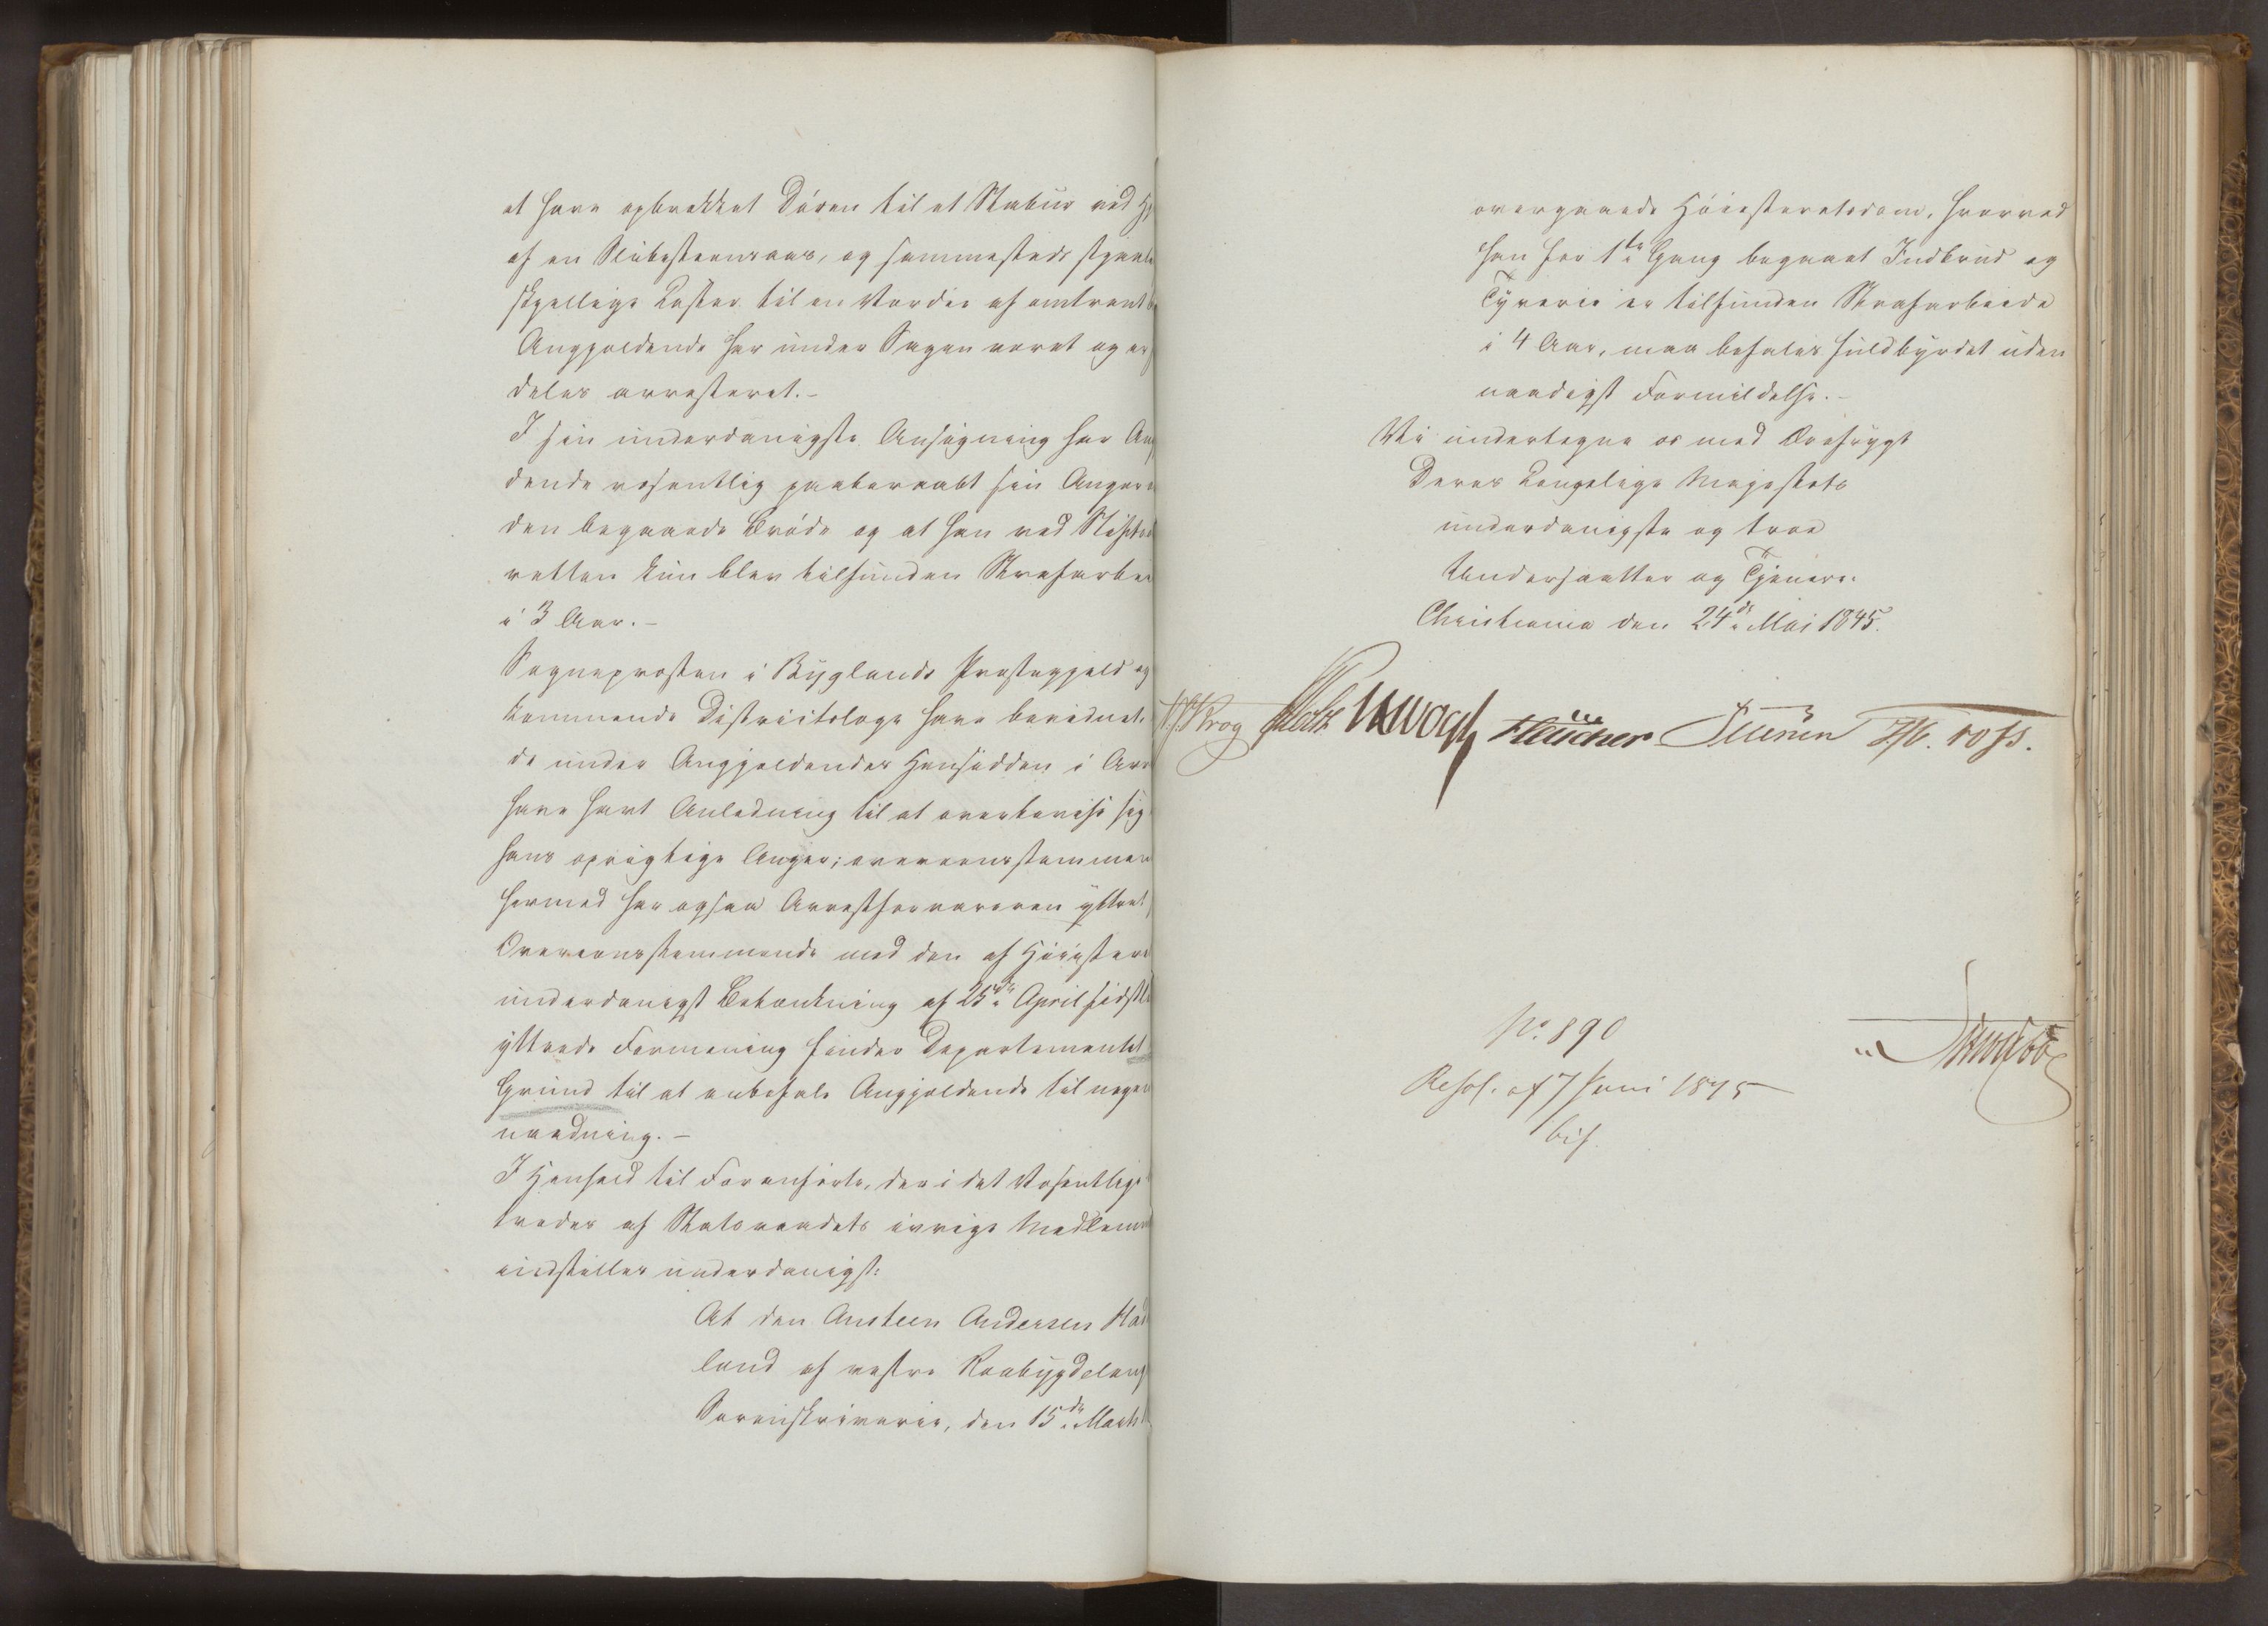 at have opbrækket Døren til et Stabur ved H
af en Slibesteensaas, og sammesteds stjaalet
skjellige Koster til en Værdie af omtrent
Angjældende har under Sagen været og er
deles arresteret.-
I sin underdanigste Ansøgning har Ang
dende væsentlig paaberaabt sin Anger
den begaaede Brøde og at han ved Stifts
retten kun blev tilfunden Strafarbei
i 3 Aar.-
Sognepresten i Byglands Præstegjeld og
kommende Districtslæge have bevidnet
de under Angjældendes Hensidden i Arr
have havt Anledning til at overbevise sig
hans oprigtige Anger; overeensstemmen
hermed har ogsaa Arrestforvareren yttret
Overeensstemmende med den af Høieste
underdanigst Betænkning af 25de April sidstl
yttrede Formening finder Departementet
Grund til at anbefale Angjældende til nogen
naadning.-
I Henhold til Foranførte, der i det Væsentlige
trædes af Statsraadets øvrige Medlem
indstilles underdanigst:
At den Austeen Andersen Had
land af vestre Raabygdelaug
Sorenskriverie, den 15de Marts
overgaaede Høiesteretsdom, hvorved
han for 1ste Gang begaaet Indbrud og
Tyverie er tilfunden Strafarbeide
i 4 Aar, maa befales fuldbyrdet uden
naadigst Formildelse.-
Vi undertegne os med Ærefrygt
Deres Kongelige Majestæts
underdanigste og troe
Undersaatter og Tjenere.
Christiania den 24de Mai 1845.
Krog Vogt
No. 890
Resol. af 7 Juni 1845
bif.